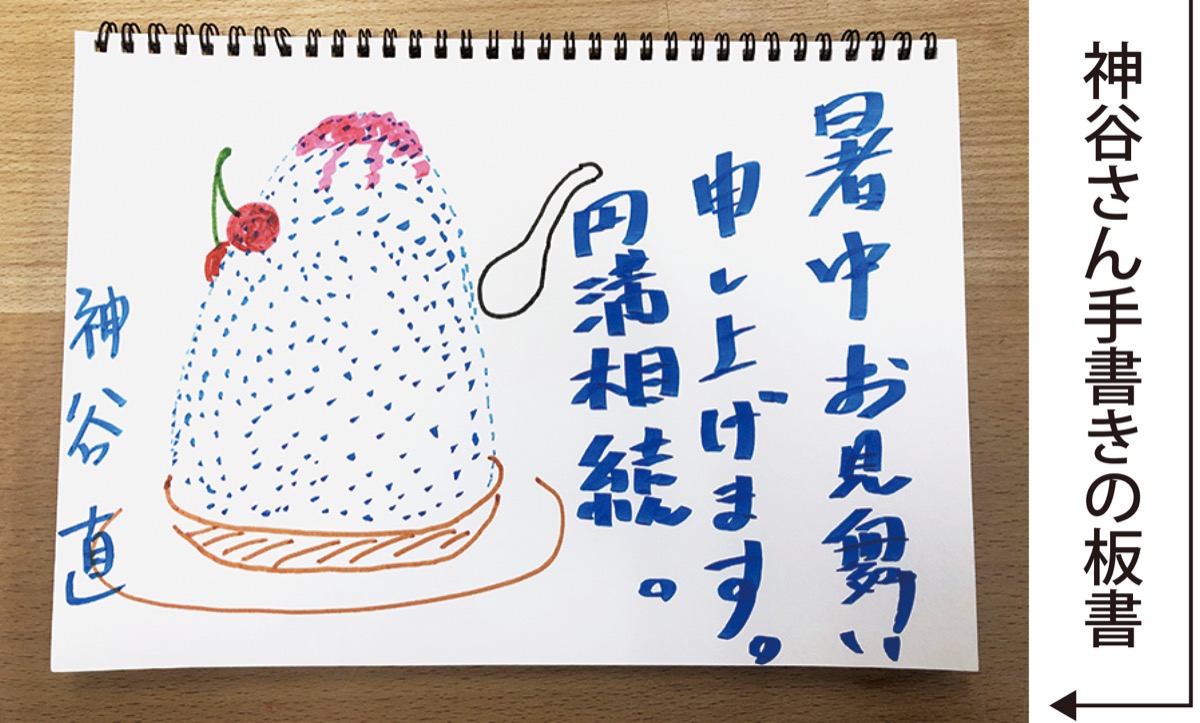 神谷さん手書きの板書
暑中お見舞い
申し上げます。
円満相続。
神谷直